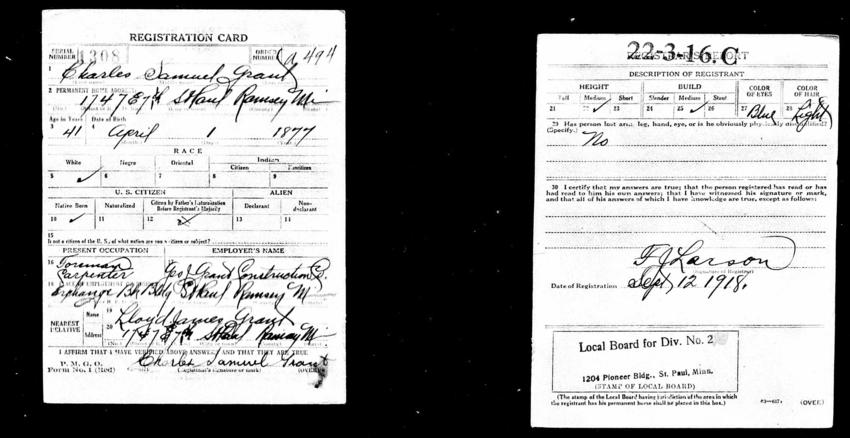 REGISTRATION CARD
SERIAL NUMBER 1308 ORDER NUMBER A 494
1 Charles Samuel Grant
2 PERMANENT HOME ADDRESS
1747 E 7th St Paul Ramsey Mi
Age in Years Date of Birth
3 41 4 April 1 1877
RACE
White Negro Oriental Indian
Citizen
5 ✓ 6 7 8 9
U. S. CITIZEN ALIEN
Native Born Naturalized Citizen by Father's Naturalization Before Registrant's Majority Declarant Non-declarant
10 ✓ 11 12 13 14
15
If not a citizen of the U. S., of what nation are you a citizen or subject?
PRESENT OCCUPATION EMPLOYER'S NAME
16 Foreman Carpenter Geo J Grant Construction Co.
Exchange Bk Bldg St Paul Ramsey M
NEAREST RELATIVE Name 19 Lloyd James Grant
Address 20 1747 E 7th St Paul Ramsay Mi
I AFFIRM THAT I HAVE VERIFIED ABOVE ANSWERS AND THAT THEY ARE TRUE
P. M. G. O.
Form No. 1 (Red) Charles Samuel Grant
(Registrant's signature or mark) (OVER)
22-3-16. C
REGISTRAR'S REPORT
DESCRIPTION OF REGISTRANT
HEIGHT BUILD COLOR OF EYES COLOR OF HAIR
Tall Medium Short Slender Medium Stout
21 22 ✓ 23 24 25 ✓ 26 27 Blue 28 Light
29 Has person lost arm, leg, hand, eye, or is he obviously physically disqualified?
(Specify.)
No
30 I certify that my answers are true; that the person registered has read or has
had read to him his own answers; that I have witnessed his signature or mark,
and that all of his answers of which I have knowledge are true, except as follows:
F J Larson
(Signature of Registrar)
Date of Registration Sept 12 1918.
Local Board for Div. No. 2
1204 Pioneer Bldg., St. Paul, Minn.
(STAMP OF LOCAL BOARD)
(The stamp of the Local Board having jurisdiction of the area in which
the registrant has his permanent home shall be placed in this box.)
(OVER)